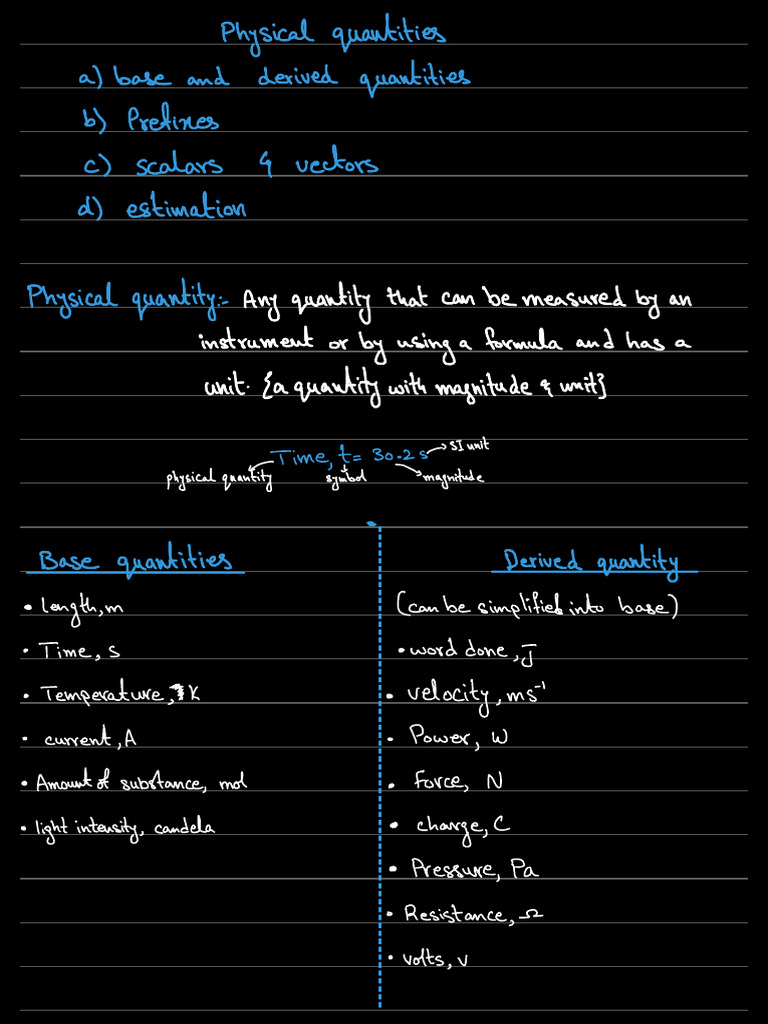 Physical quantities
a) base and derived quantities
b) Prefixes
c) scalars & vectors
d) estimation
Physical quantity:- Any quantity that can be measured by an
instrument or by using a formula and has a
unit. {a quantity with magnitude & unit}
Time, t = 30.2 s → SI unit
physical quantity symbol magnitude
Base quantities
• length, m
• Time, s
• Temperature, K
• current, A
• Amount of substance, mol
• light intensity, candela
Derived quantity
(can be simplified into base)
• word done, J
• velocity, ms⁻¹
• Power, W
• Force, N
• charge, C
• Pressure, Pa
• Resistance, Ω
• volts, v